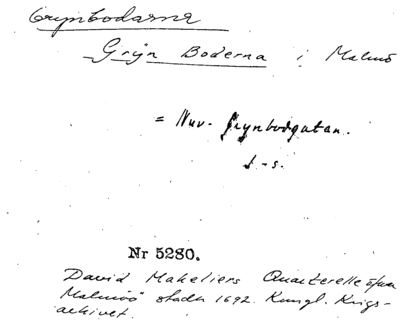 Grynbodarna
Grÿn Boderna i Malmö
= Nuv. Grynbodgatan.
d.-s.
Nr 5280.
David Makeliers Quarterelle öfwer
Malmöö stadh 1692. Kungl. Krigs-
arkivet.